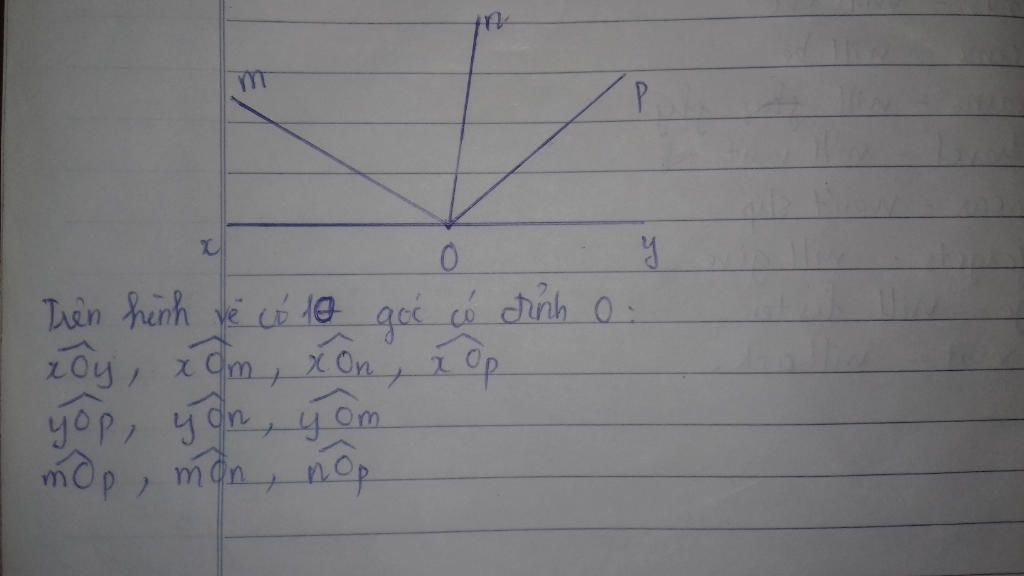 n
m
p
x
O
y
Trên hình vẽ có 10 góc có đỉnh O:
xOy, xOm, xOn, xOp
yOp, yOn, yOm
mOp, mOn, nOp